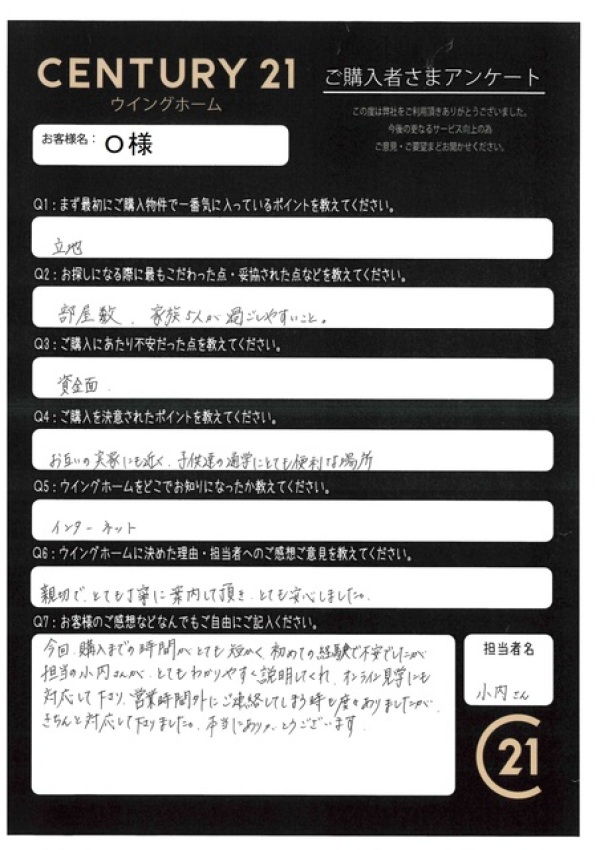 CENTURY 21
ウイングホーム
ご購入者さまアンケート
この度は弊社をご利用頂きありがとうございました。
今後の更なるサービス向上の為
ご意見・ご要望まどお聞かせください。
お客様名: O様
Q1:まず最初にご購入物件で一番気に入っているポイントを教えてください。
立地
Q2:お探しになる際に最もこだわった点・妥協された点などを教えてください。
部屋数、家族5人が過ごしやすいこと。
Q3:ご購入にあたり不安だった点を教えてください。
資金面.
Q4:ご購入を決意されたポイントを教えてください。
お互いの実家にも近く、子供達の通学にとても便利な場所
Q5:ウイングホームをどこでお知りになったか教えてください。
インターネット
Q6:ウイングホームに決めた理由・担当者へのご感想ご意見を教えてください。
親切で、とても丁寧に案内して頂き、とても安心しました。
Q7:お客様のご感想などなんでもご自由にご記入ください。
今回、購入までの時間がとても短かく、初めての経験で不安でしたが
担当の小内さんが、とてもわかりやすく説明してくれ、オンライン見学にも
対応して下さり、営業時間外にご連絡してしまう時も度々ありましたが、
きちんと対応して下さりました。本当にありがとうございます.
担当者名
小内さん
C21